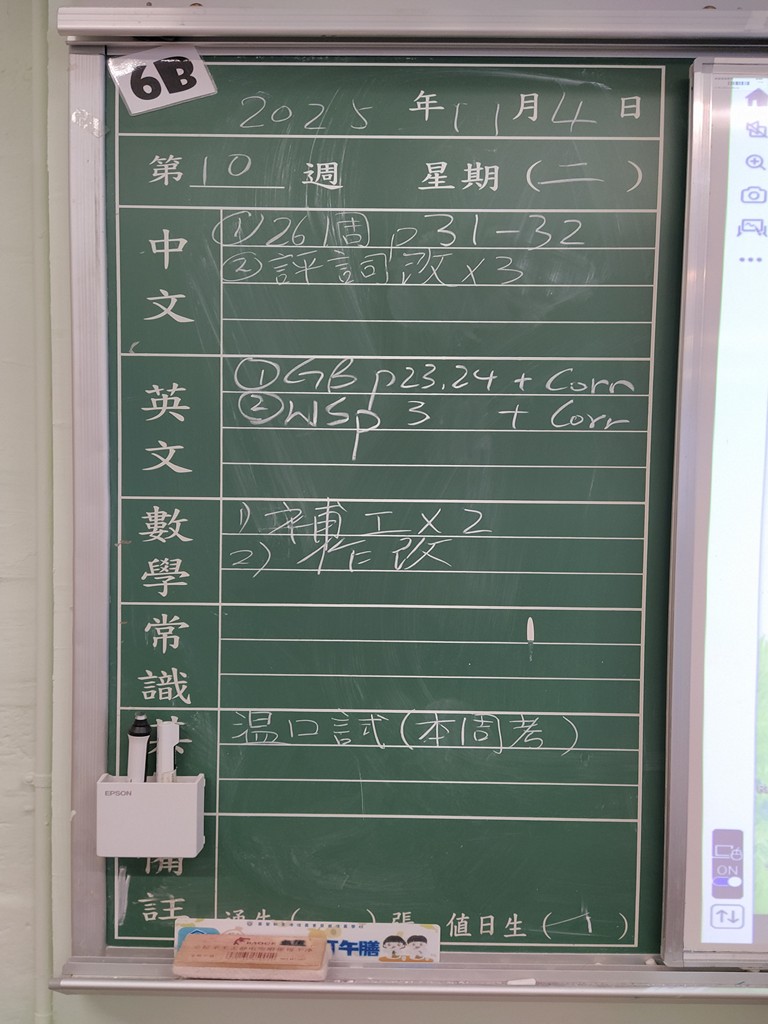 6B
2025 年 11 月 4 日
第 10 週 星期 (二)
中文
① 26個 p31-32
② 評詞改 x3
英文
① GB p23,24 + Corr
② WSp 3 + Corr
數學
1) 補工 x 2
2) 補作改
常識
溫口試(本周考)
EPSON
備註
通告 ( ) 張 值日生 (1)
午膳
ON